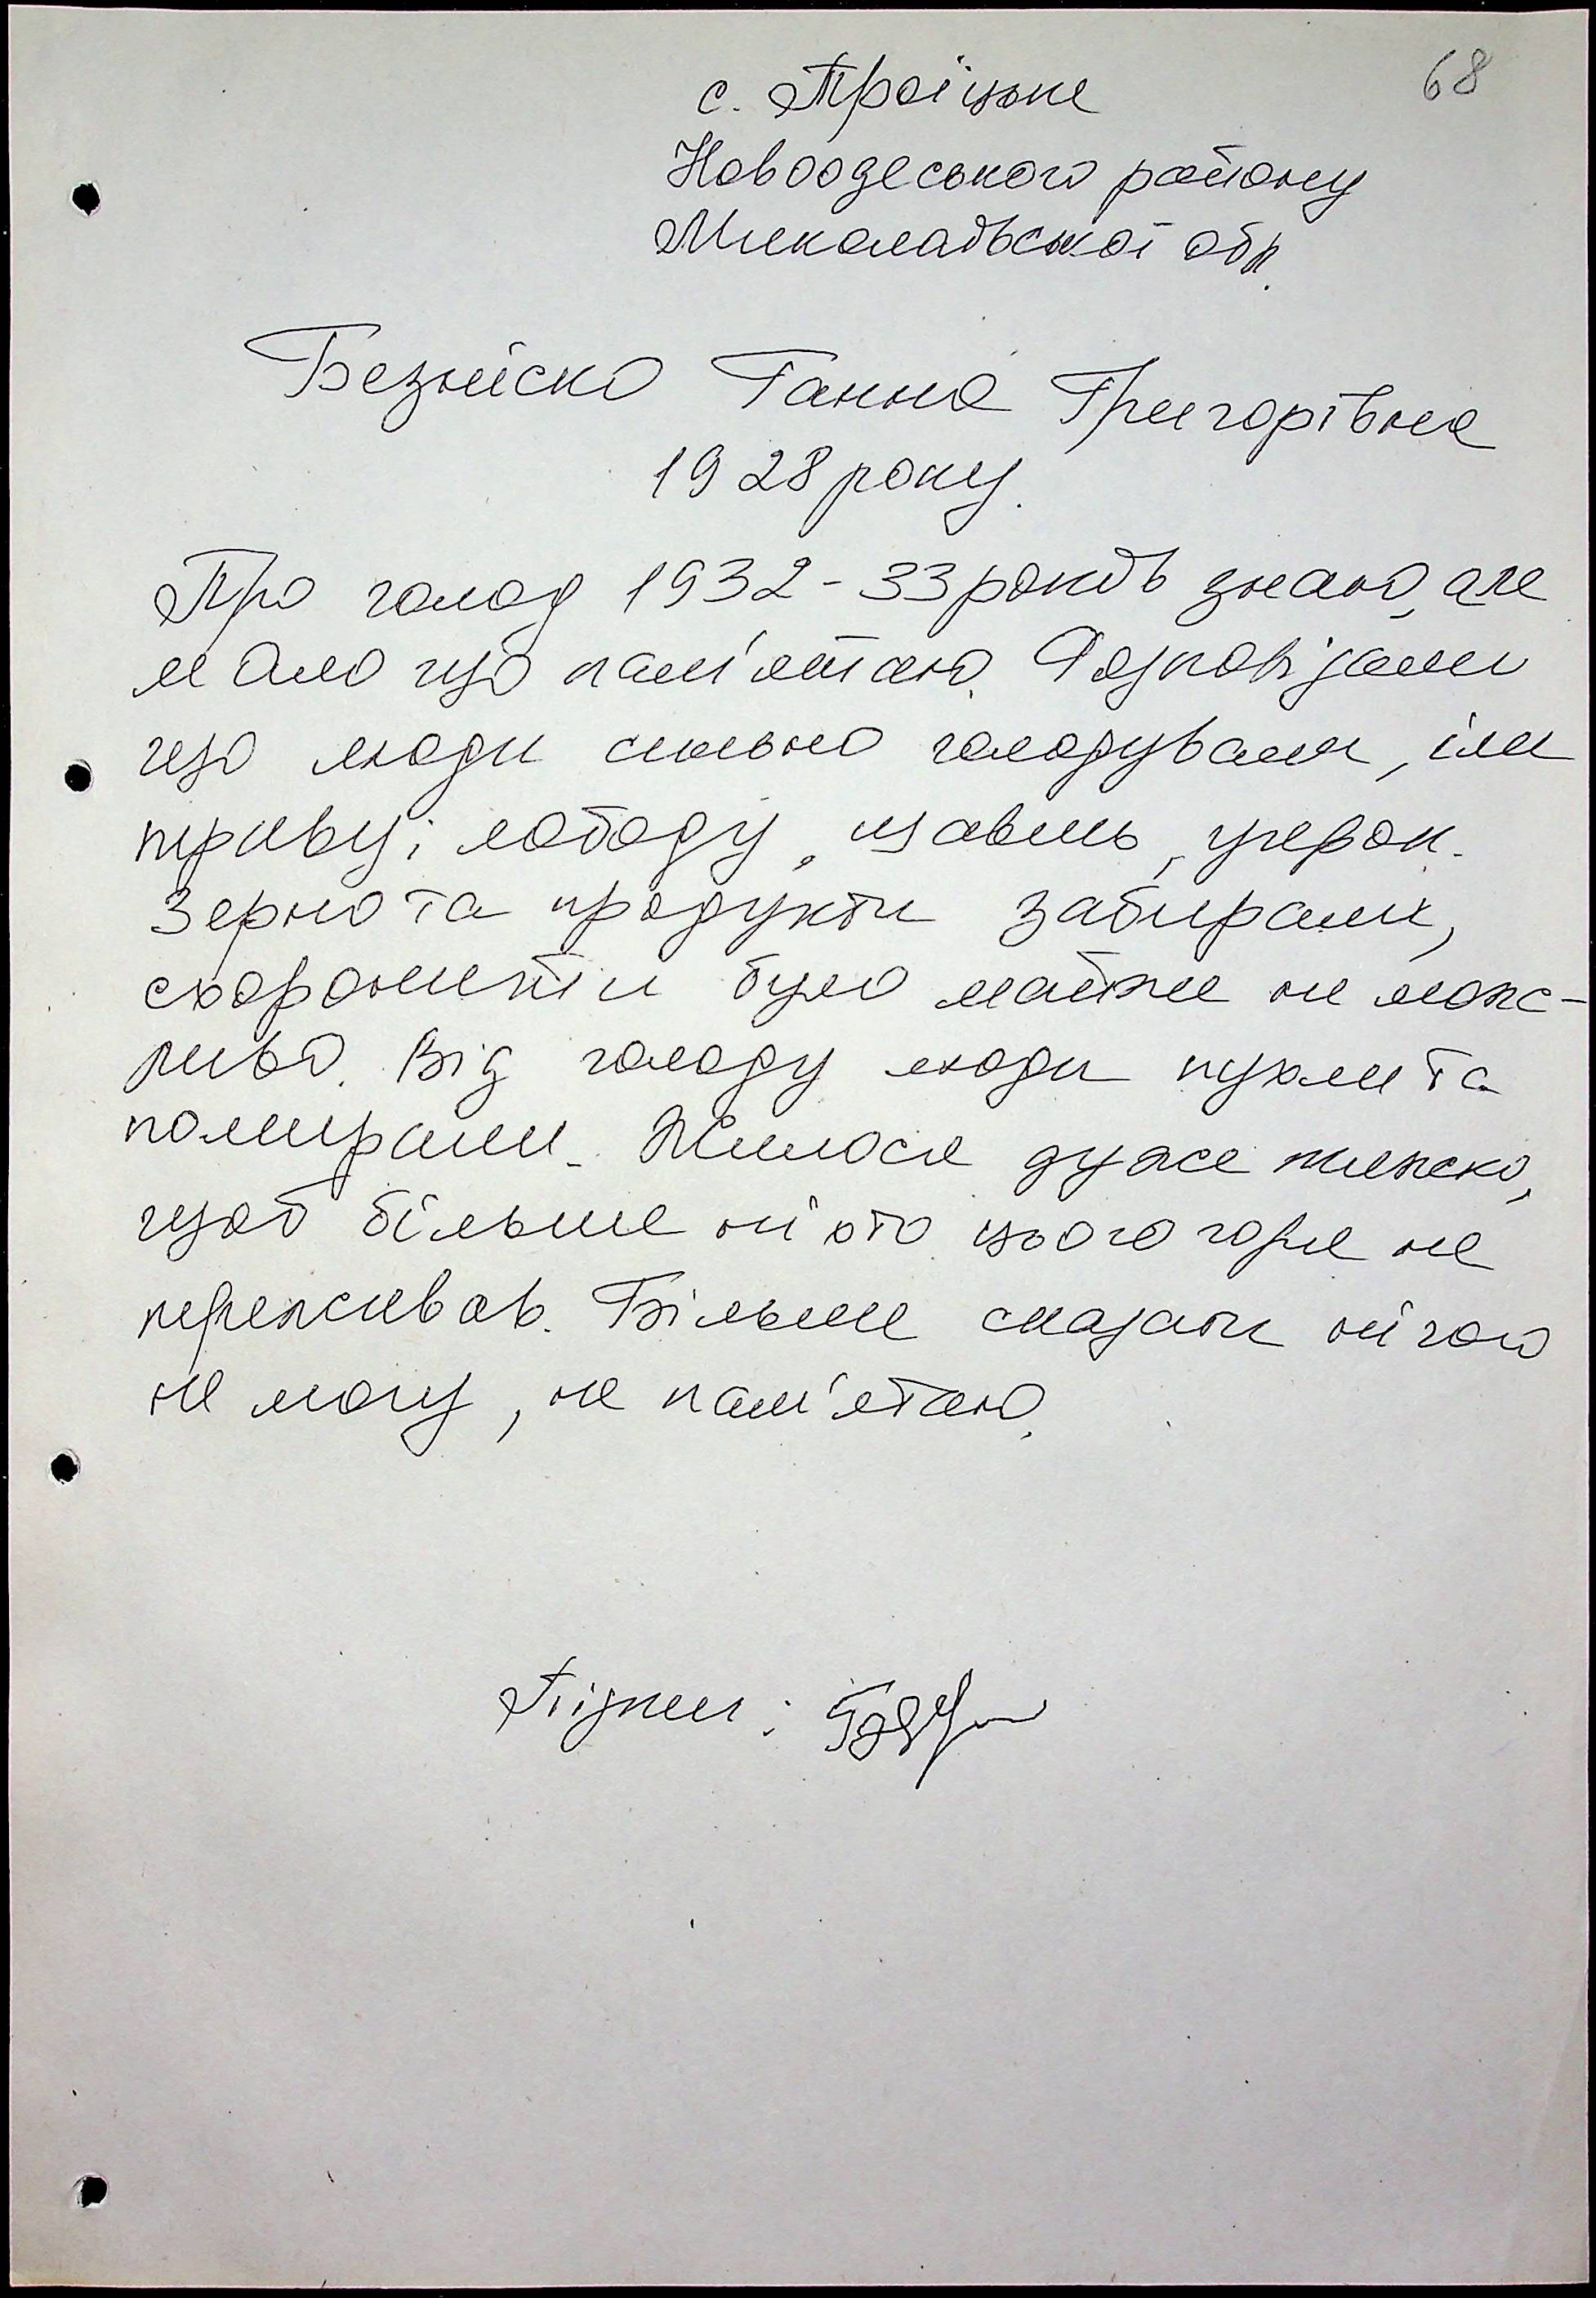 68
с. Троїцьке
Новоодеського району
Миколаївської обл.
Ганна Григорівна
1928 року.
Про голод 1932-33 років знаю, але
мало що пам'ятаю. Розповідали
що люди сильно голодували, їли
траву; лободу, щавель,
Зерно та продукти забирали,
схоронити було майже не мож-
ливо. Від голоду люди пухли та
помирали. Жилося дуже тяжко,
щоб більше ніхто цього горя не
переживав. Більше сказати нічого
не можу, не пам'ятаю.
Підпис: